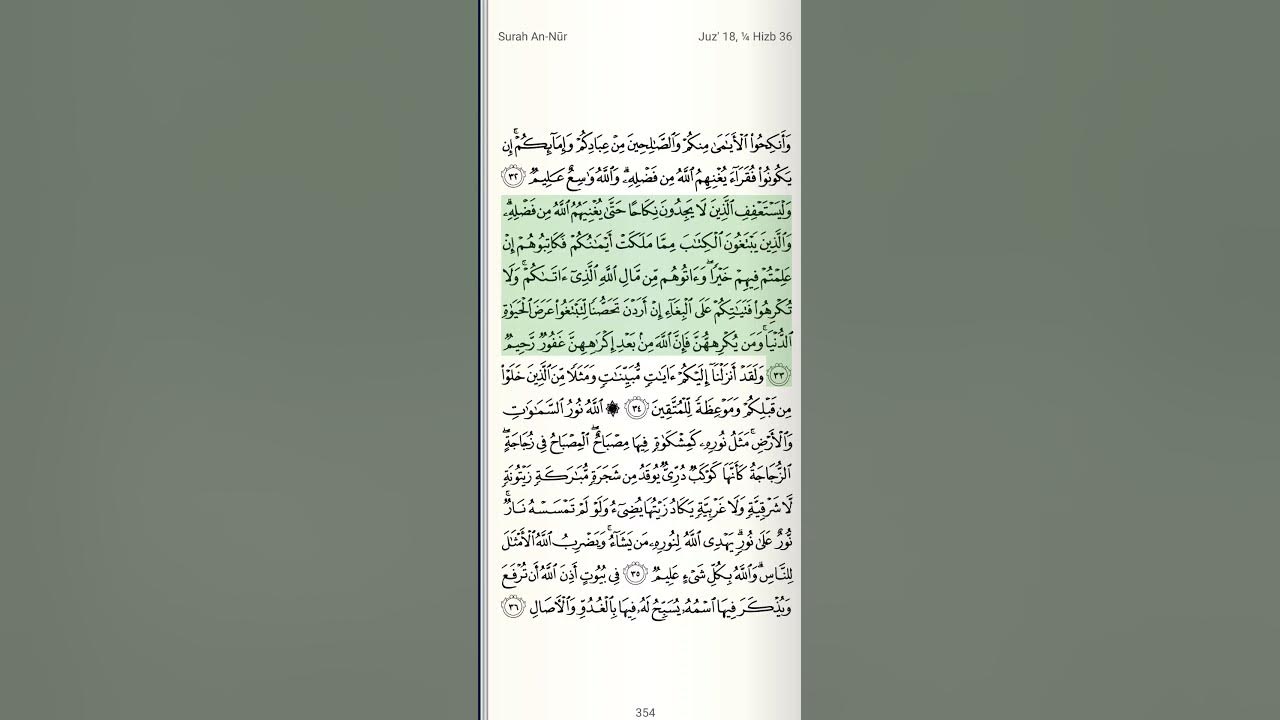 Surah An-Nūr
Juz' 18, ¼ Hizb 36
وَأَنكِحُوا۟ ٱلْأَيَـٰمَىٰ مِنكُمْ وَٱلصَّـٰلِحِينَ مِنْ عِبَادِكُمْ وَإِمَآئِكُمْ ۚ إِن
يَكُونُوا۟ فُقَرَآءَ يُغْنِهِمُ ٱللَّهُ مِن فَضْلِهِۦ ۗ وَٱللَّهُ وَٰسِعٌ عَلِيمٌ ٣٢
وَلْيَسْتَعْفِفِ ٱلَّذِينَ لَا يَجِدُونَ نِكَاحًا حَتَّىٰ يُغْنِيَهُمُ ٱللَّهُ مِن فَضْلِهِۦ ۗ
وَٱلَّذِينَ يَبْتَغُونَ ٱلْكِتَـٰبَ مِمَّا مَلَكَتْ أَيْمَـٰنُكُمْ فَكَاتِبُوهُمْ إِنْ
عَلِمْتُمْ فِيهِمْ خَيْرًا ۖ وَءَاتُوهُم مِّن مَّالِ ٱللَّهِ ٱلَّذِىٓ ءَاتَىٰكُمْ ۚ وَلَا
تُكْرِهُوا۟ فَتَيَـٰتِكُمْ عَلَى ٱلْبِغَآءِ إِنْ أَرَدْنَ تَحَصُّنًا لِّتَبْتَغُوا۟ عَرَضَ ٱلْحَيَوٰةِ
ٱلدُّنْيَا ۚ وَمَن يُكْرِههُّنَّ فَإِنَّ ٱللَّهَ مِنۢ بَعْدِ إِكْرَٰهِهِنَّ غَفُورٌ رَّحِيمٌ
٣٣ وَلَقَدْ أَنزَلْنَآ إِلَيْكُمْ ءَايَـٰتٍ مُّبَيِّنَـٰتٍ وَمَثَلًا مِّنَ ٱلَّذِينَ خَلَوْا۟
مِن قَبْلِكُمْ وَمَوْعِظَةً لِّلْمُتَّقِينَ ٣٤ ۞ ٱللَّهُ نُورُ ٱلسَّمَـٰوَٰتِ
وَٱلْأَرْضِ ۚ مَثَلُ نُورِهِۦ كَمِشْكَوٰةٍ فِيهَا مِصْبَاحٌ ۖ ٱلْمِصْبَاحُ فِى زُجَاجَةٍ ۖ
ٱلزُّجَاجَةُ كَأَنَّهَا كَوْكَبٌ دُرِّىٌّ يُوقَدُ مِن شَجَرَةٍ مُّبَـٰرَكَةٍ زَيْتُونَةٍ
لَّا شَرْقِيَّةٍ وَلَا غَرْبِيَّةٍ يَكَادُ زَيْتُهَا يُضِىٓءُ وَلَوْ لَمْ تَمْسَسْهُ نَارٌ ۚ
نُّورٌ عَلَىٰ نُورٍ ۗ يَهْدِى ٱللَّهُ لِنُورِهِۦ مَن يَشَآءُ ۚ وَيَضْرِبُ ٱللَّهُ ٱلْأَمْثَـٰلَ
لِلنَّاسِ ۗ وَٱللَّهُ بِكُلِّ شَىْءٍ عَلِيمٌ ٣٥ فِى بُيُوتٍ أَذِنَ ٱللَّهُ أَن تُرْفَعَ
وَيُذْكَرَ فِيهَا ٱسْمُهُۥ يُسَبِّحُ لَهُۥ فِيهَا بِٱلْغُدُوِّ وَٱلْـَٔاصَالِ ٣٦
354